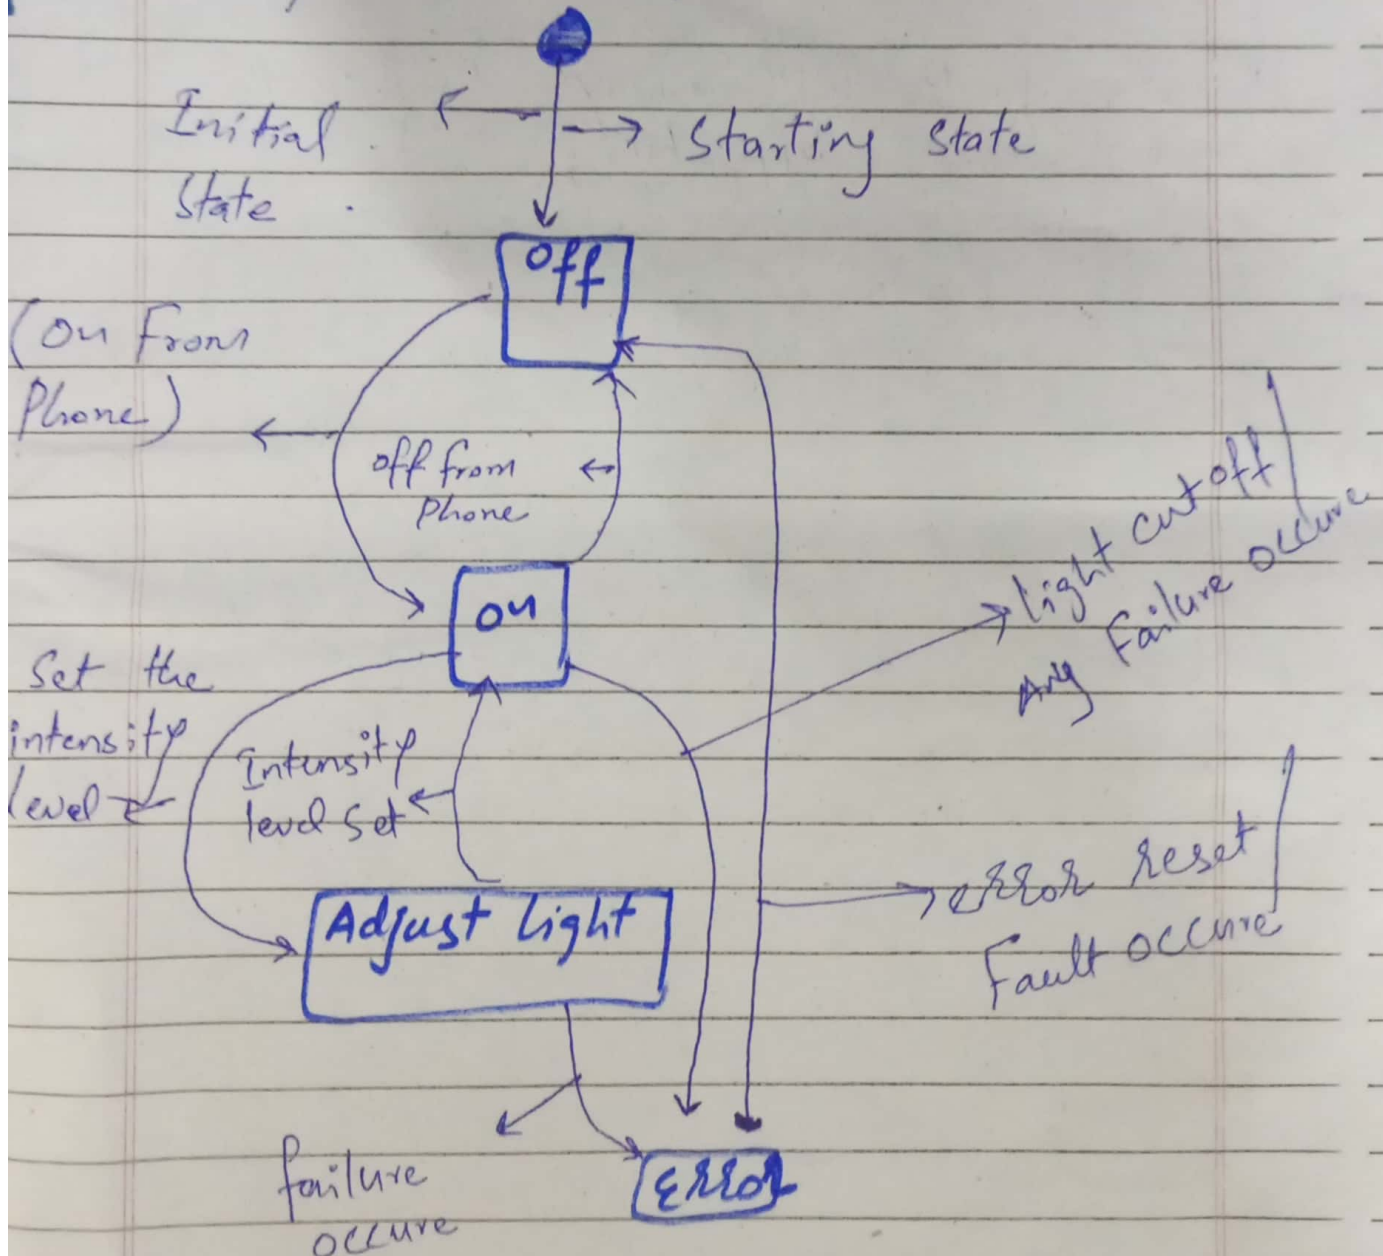 Initial
State
Starting State
Off
(On From
Phone)
Off from
Phone
On
Light cut off
Any Failure occure
Set the
intensity
level
Intensity
level set
error reset
Fault occure
Adjust Light
failure
occure
Error